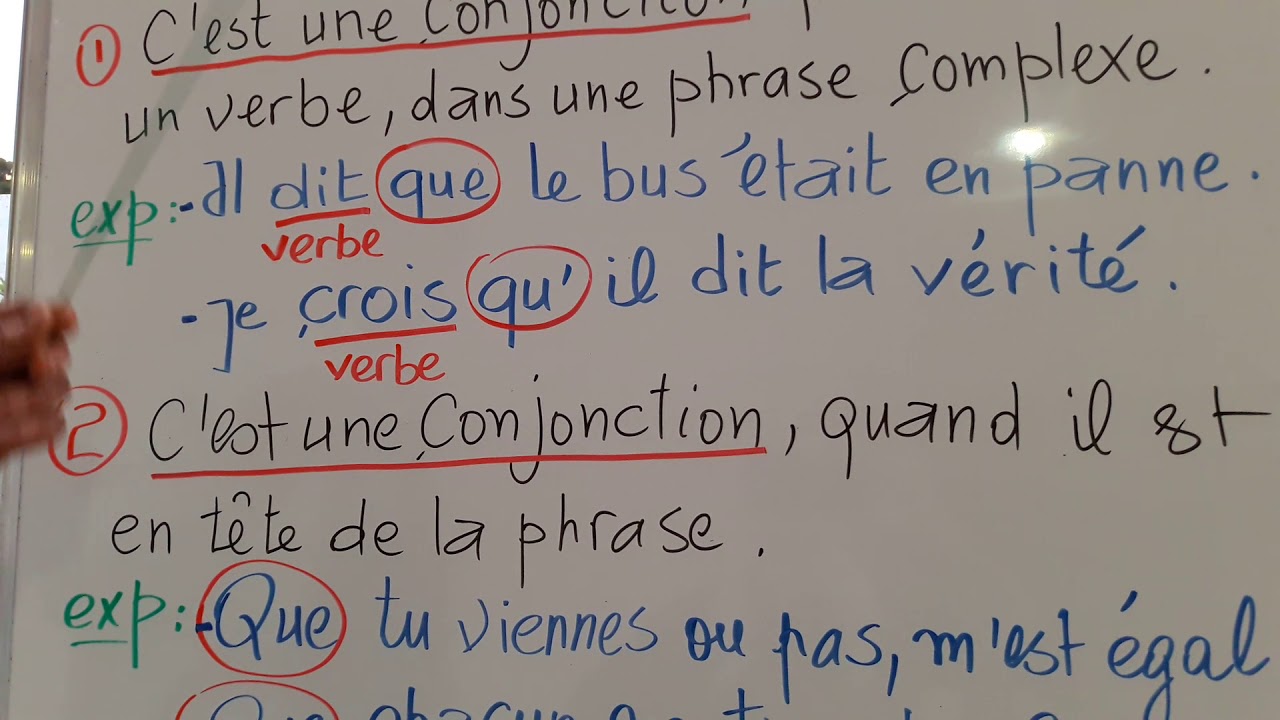 ① C'est une Conjonction
un verbe, dans une phrase complexe.
exp:- Il dit que le bus était en panne.
verbe
- je crois qu'il dit la vérité.
verbe
② C'est une Conjonction, quand il est
en tête de la phrase.
exp:- Que tu viennes ou pas, m'est égal